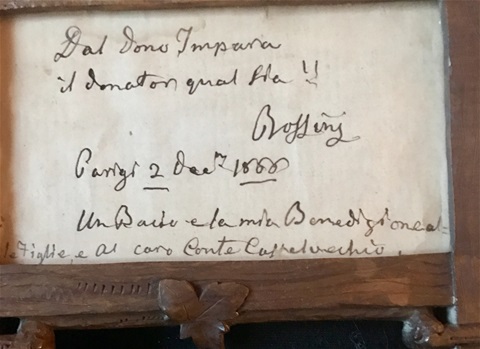 Dal Dono Impara
il donator qual sia !!
Rossini
Parigi 2 Dec.e 1866
Un Bacio e la mia Benedizione al=
le Figlie, e Al caro Conte Castelvecchio.